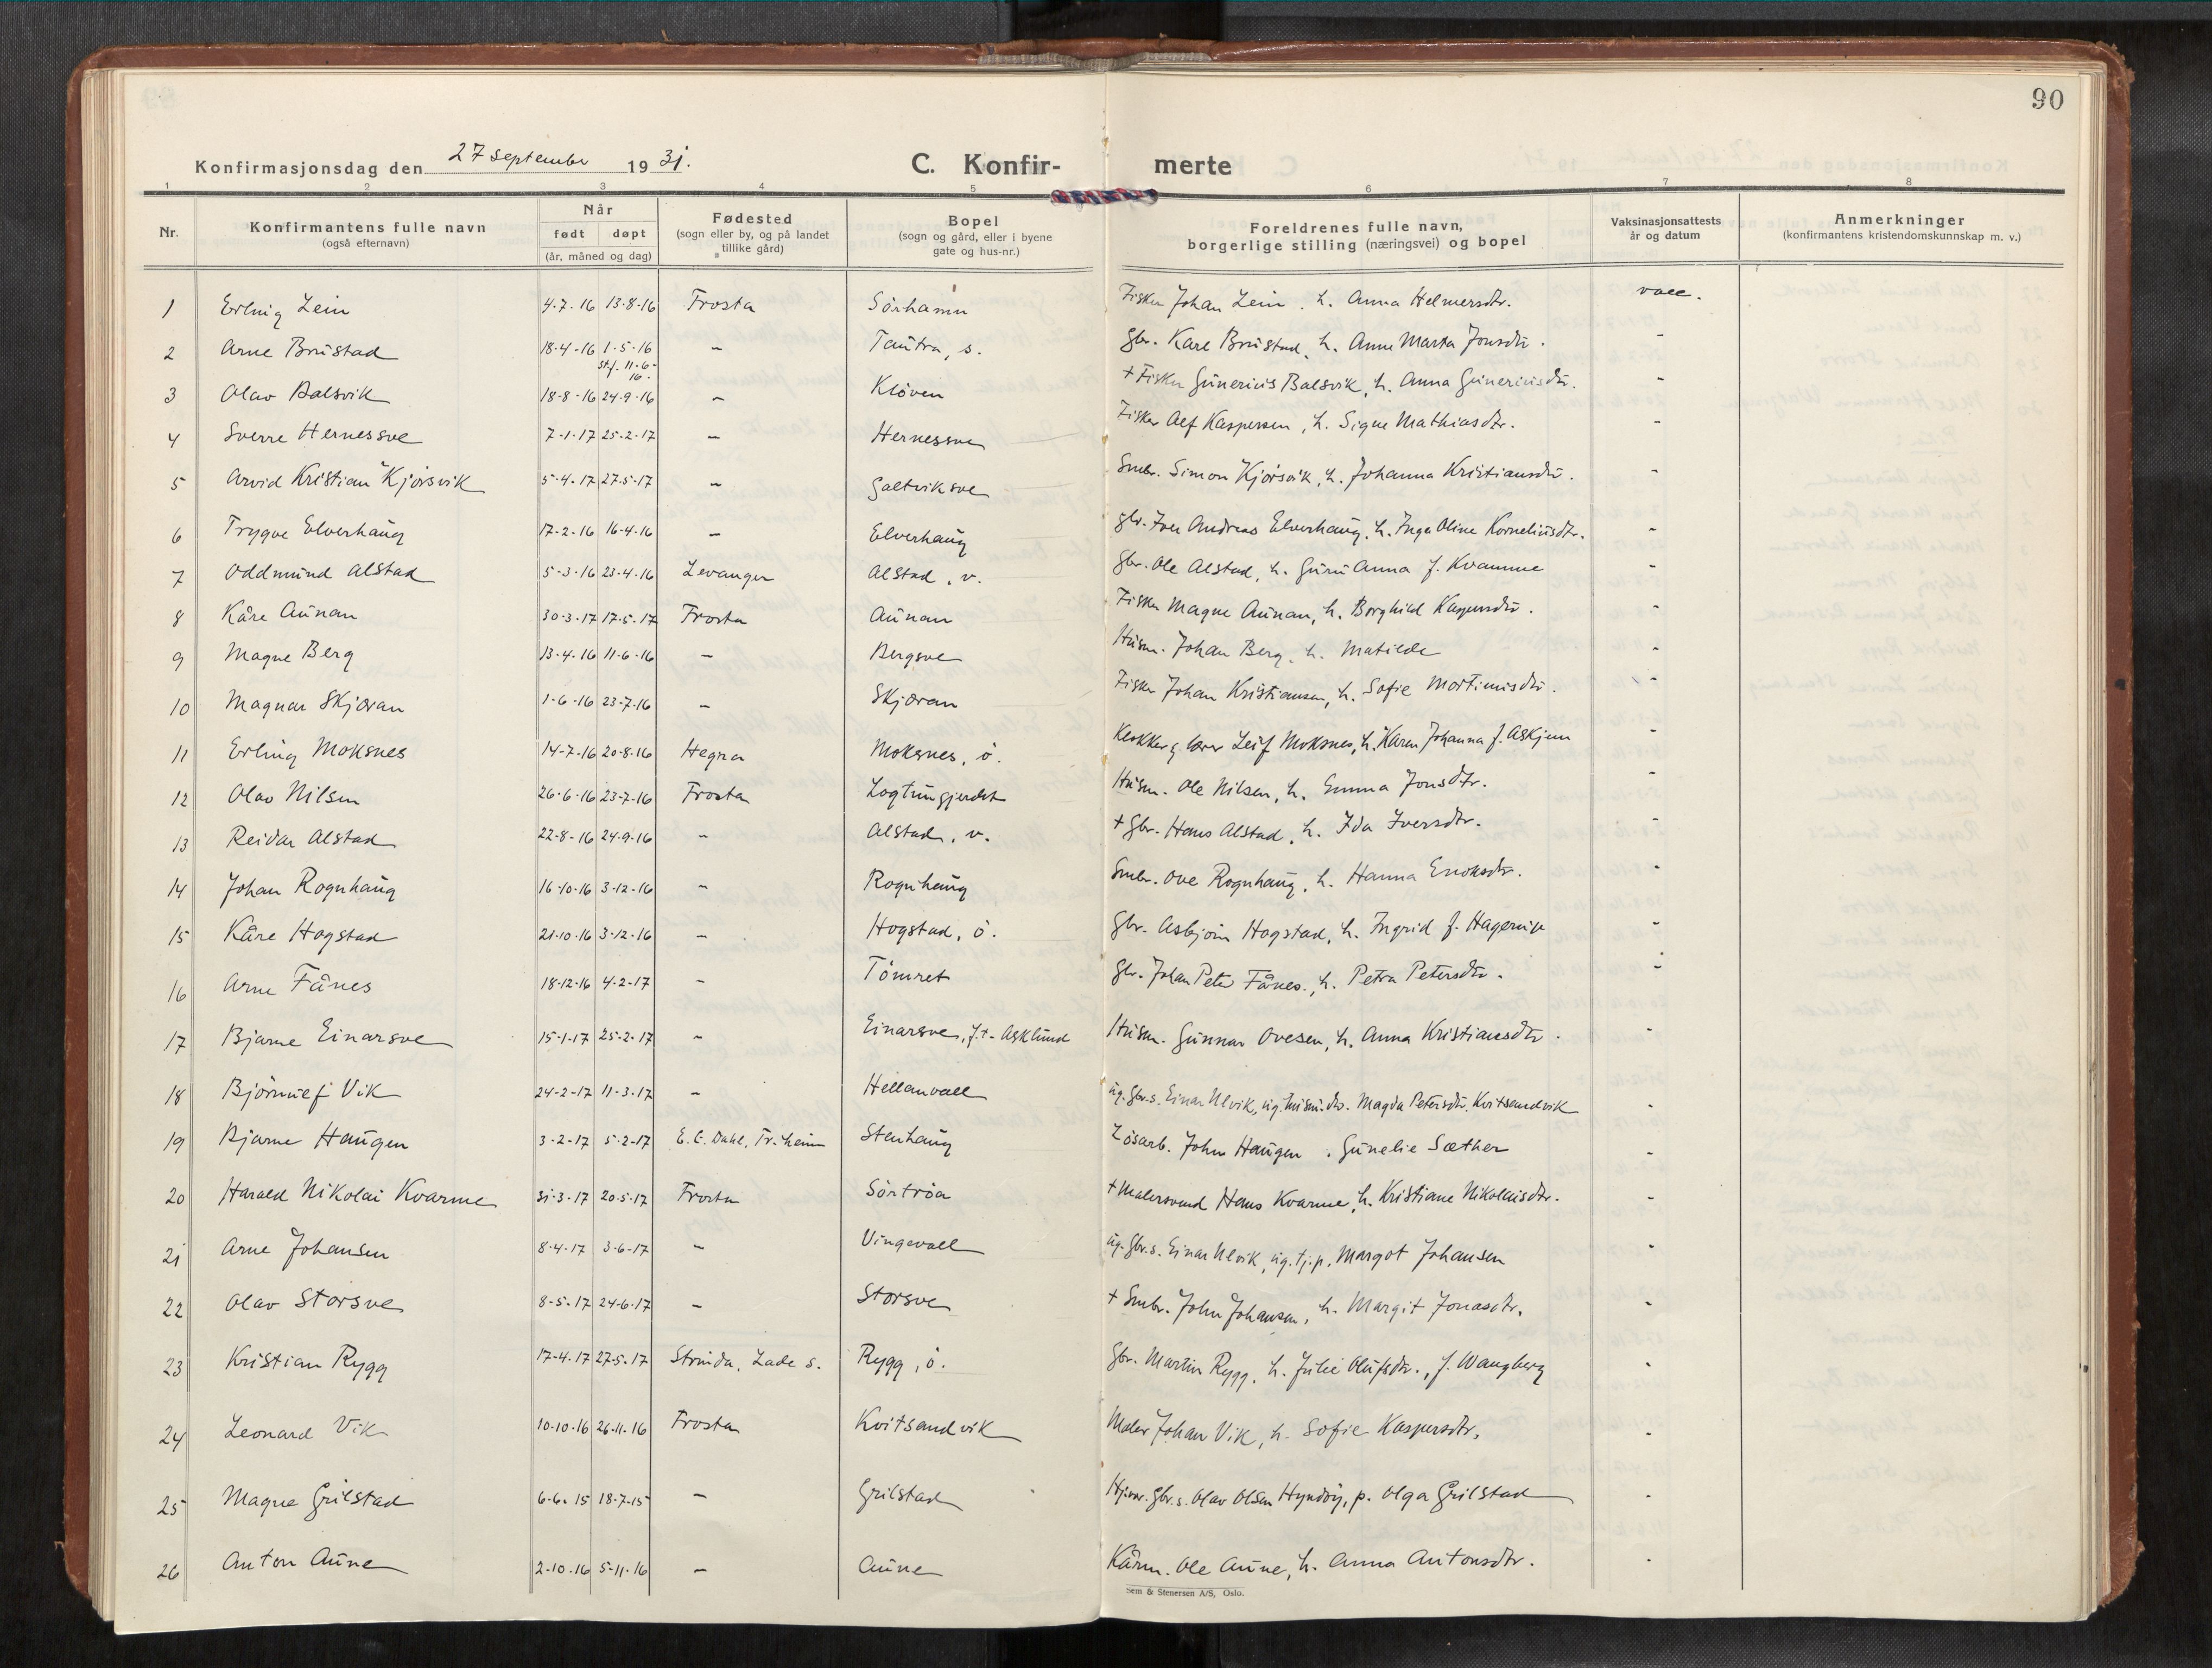 90
Konfirmasjonsdag den 27 september 1931.
C. Konfir- merte
1 2 3 4 5 6 7 8
Nr. Konfirmantens fulle navn (også efternavn) Når født døpt (år, måned og dag) Fødested (sogn eller by, og på landet tillike gård) Bopel (sogn og gård, eller i byene gate og hus-nr.) Foreldrenes fulle navn, borgerlige stilling (næringsvei) og bopel Vaksinasjonsattests år og datum Anmerkninger (konfirmantens kristendomskunnskap m. v.)
1 Erling Lein 4-7-16 13-8-16 Frosta Sørhamn Fisker Johan Lein. h. Anna Helmersdtr. vacc.
2 Arne Brustad 18-4-16 1-5-16 st.f. 11-6-16. - Tautra, s. Gbr. Kare Brustad, h. Anne Marta Jonsdtr. -
3 Olav Balsvik 18-8-16 24-9-16 - Kløven + Fisker Gunerius Balsvik, h. Anna Guneriusdtr. -
4 Sverre Hernessve 7-1-17 25-2-17 - Hernessve Fisker Alf Kaspersen, h. Signe Mathiasdtr. -
5 Arvid Kristian Kjørsvik 5-4-17 27-5-17 - Galtviksve Smbr. Simon Kjørsvik, h. Johanna Kristiansdtr. -
6 Trygve Elverhaug 17-2-16 16-4-16 - Elverhaug Gbr. Iver Andreas Elverhaug, h. Inga Oline Korneliusdtr. -
7 Oddmund Alstad 5-3-16 23-4-16 Levanger Alstad, v. Gbr. Ole Alstad, h. Guru Anna f. Kvamme -
8 Kåre Aunan 30-3-17 17-5-17 Frosta Aunan Fisker Magne Aunan, h. Borghild Kaspersdtr. -
9 Magne Berg 13-4-16 11-6-16 - Bergsve Husm. Johan Berg, h. Matilde -
10 Magnar Skjøran 1-6-16 23-7-16 - Skjøran Fisker Johan Kristiansen, h. Sofie Mortinusdtr. -
11 Erling Moksnes 14-7-16 20-8-16 Hegra Moksnes, ø. Klokker g lærer Leif Moksnes, h. Karen Johanna f. Askjem -
12 Olav Nilsen 26-6-16 23-7-16 Frosta Logtungjerdet Husm. Ole Nilsen, h. Emma Jonsdtr. -
13 Reidar Alstad 22-8-16 24-9-16 - Alstad, v. + Gbr. Hans Alstad, h. Ida Iversdtr. -
14 Johan Rognhaug 16-10-16 3-12-16 - Rognhaug Smbr. Ove Rognhaug, h. Hanna Enoksdtr. -
15 Kåre Hogstad 21-10-16 3-12-16 - Hogstad, ø. Gbr. Asbjørn Hogstad, h. Ingrid f. Hagerup -
16 Arne Fånes 18-12-16 4-2-17 - Tømret Gbr. Johan Peter Fånes, h. Petra Petersdtr. -
17 Bjarne Einarsve 15-1-17 25-2-17 - Einarsve, f.t. Asklund Husm. Gunnar Ovesen, h. Anna Kristiansdtr. -
18 Bjørnulf Vik 24-2-17 11-3-17 - Hellanvall ug. Gbr.s. Einar Ulvik, ug. husm.dtr. Magda Petersdtr. Kvitsandvik -
19 Bjarne Haugen 3-2-17 5-2-17 E. C. Dahl, Tr.heim Stenhaug Løsarb. John Haugen . Gunelie Sæther -
20 Harald Nikolai Kvarme 31-3-17 20-5-17 Frosta Sørtrøa + Malersvend Hans Kvarme, h. Kristiane Nikolaisdtr. -
21 Arne Johansen 8-4-17 3-6-17 - Vingevall ug. Gbr.s. Einar Ulvik, ug. tj.p. Margot Johansen -
22 Olav Storsve 8-5-17 24-6-17 - Storsve + Smbr. John Johansen, h. Margit Jonasdtr. -
23 Kristian Rygg 17-4-17 27-5-17 Strinda, Lade s. Rygg, ø. Gbr. Martin Rygg, h. Julie Olufsdtr., f. Wangberg -
24 Leonard Vik 10-10-16 26-11-16 Frosta Kvitsandvik Maler Johan Vik, h. Sofie Kaspersdtr. -
25 Magne Grilstad 6-6-15 18-7-15 - Grilstad Gbr.s. Olav Olsen p. Olga Grilstad -
26 Anton Aune 2-10-16 5-11-16 - Aune Kårm. Ole Aune, h. Anna Antonsdtr. -
Sem & Stenersen A/S, Oslo.